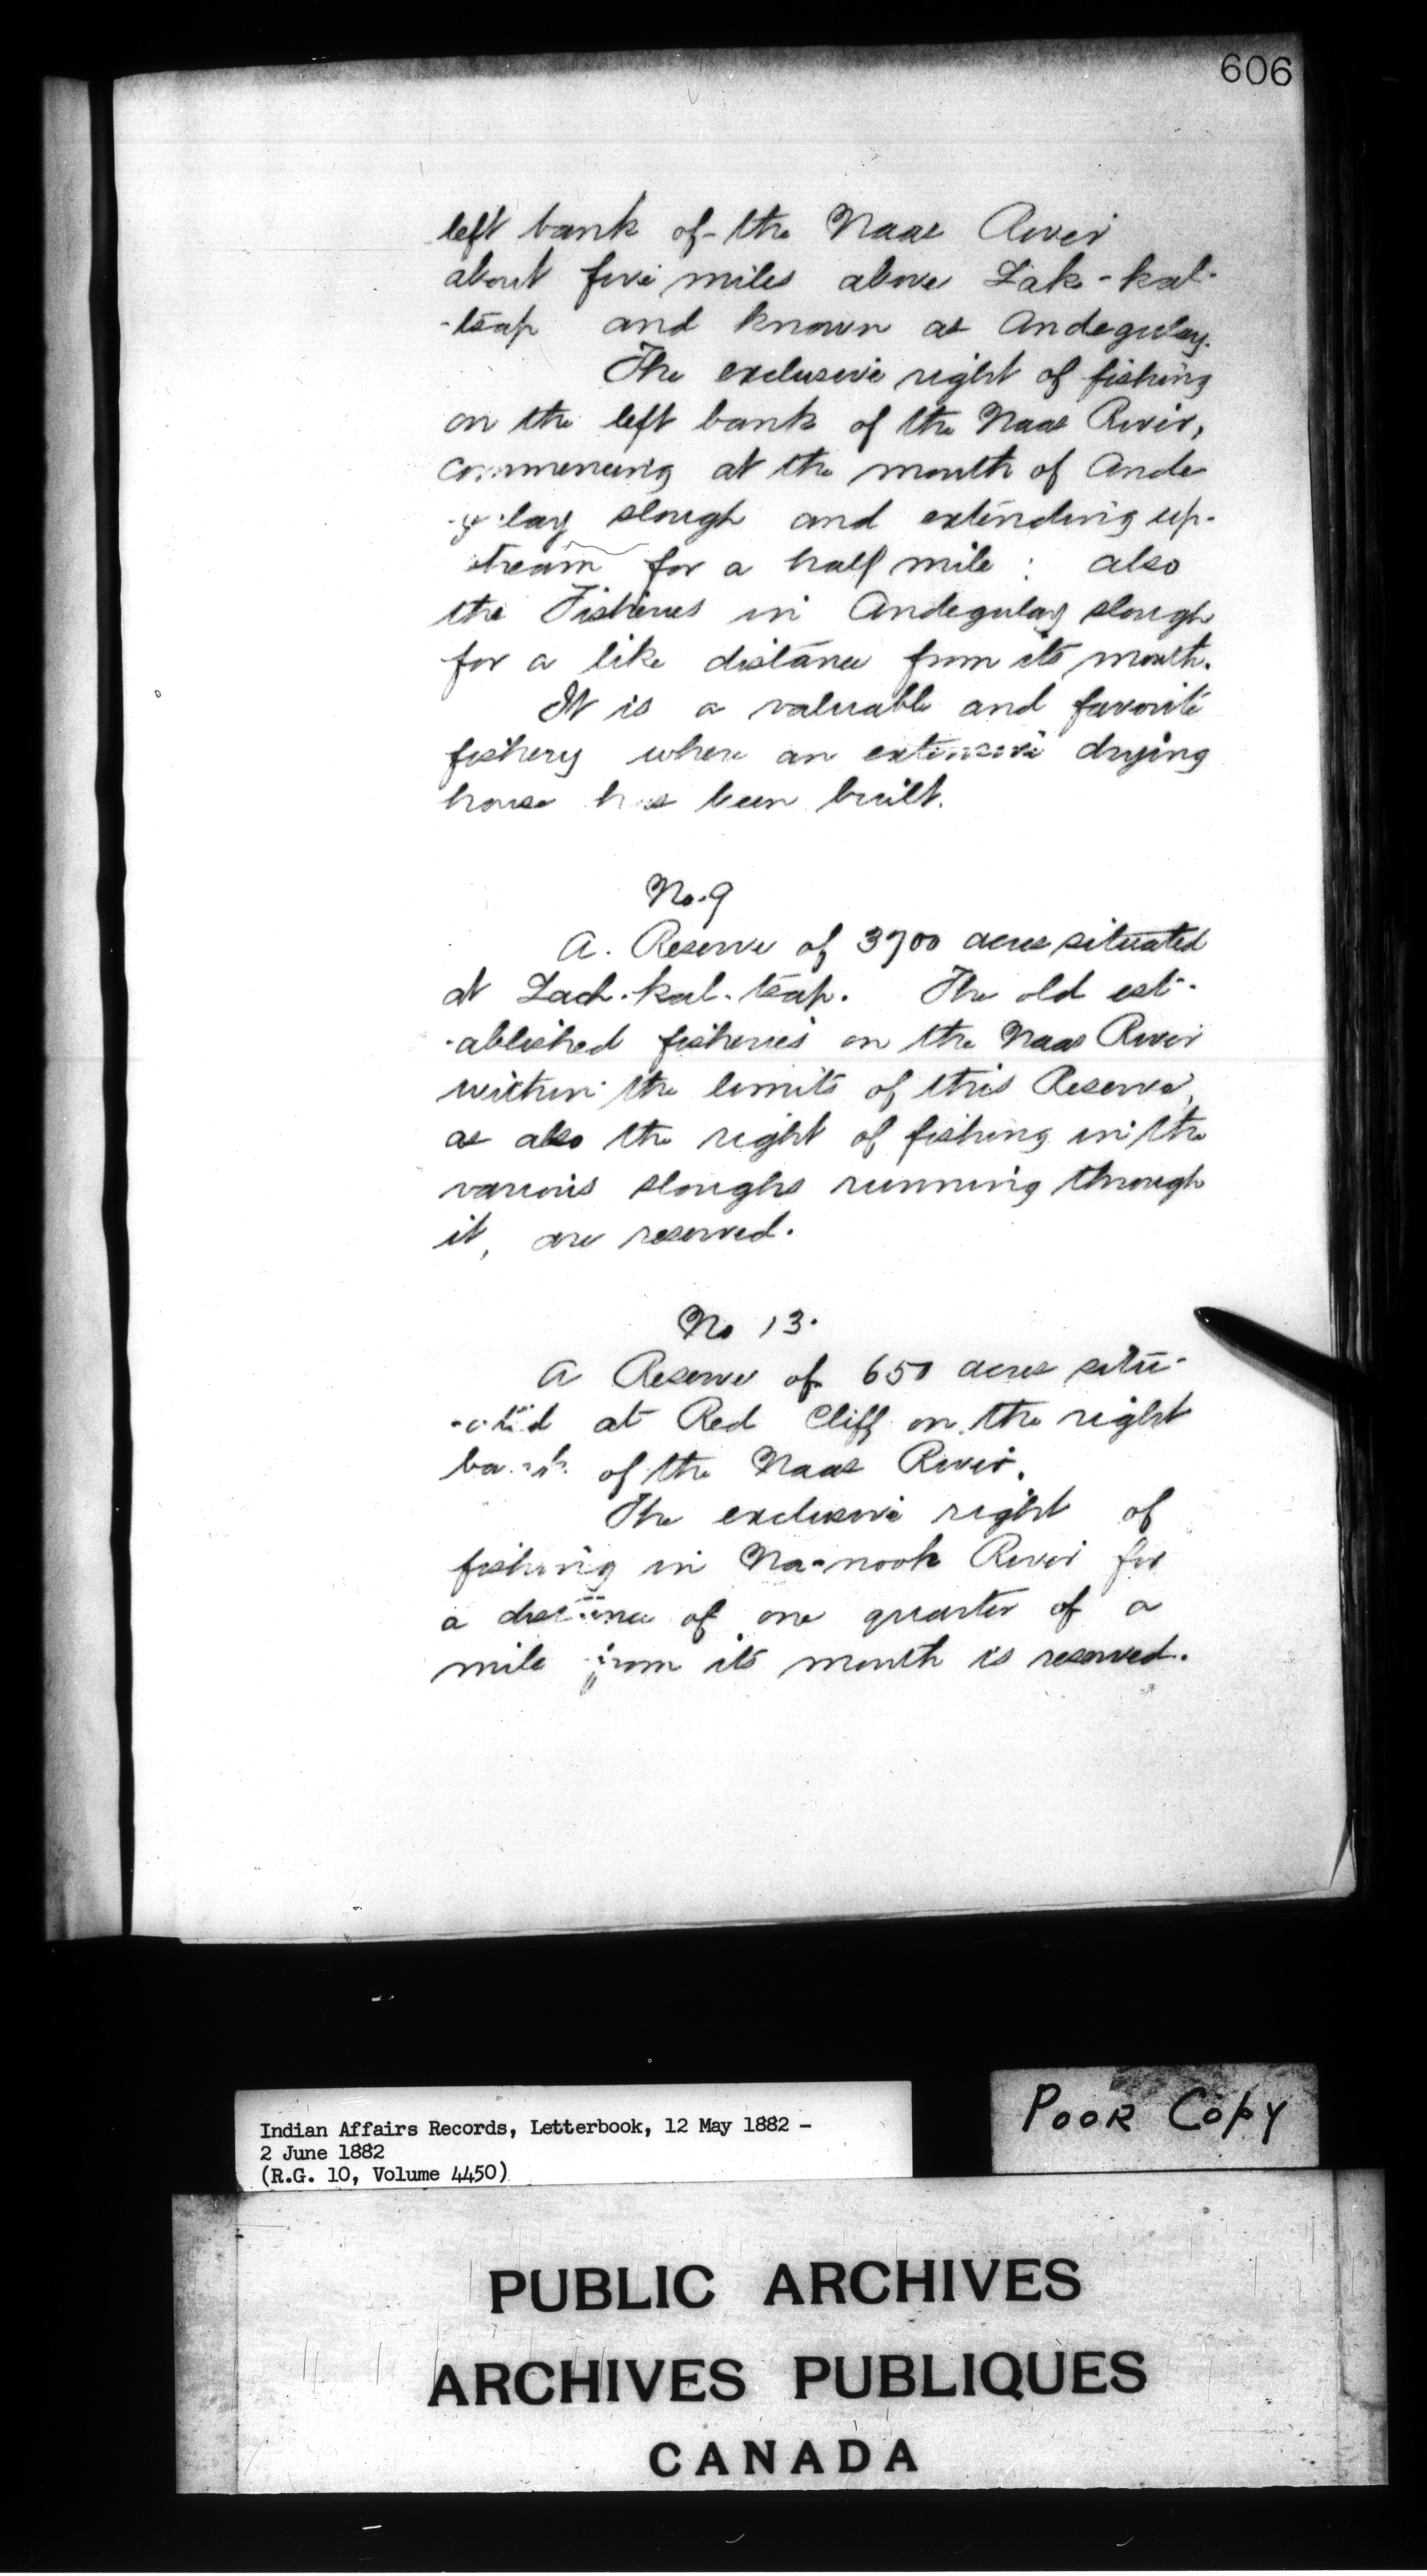 606
left bank of the Naas River
about five miles above Lak-kal-
-tsap and known as Andegulay.
The exclusive right of fishing
on the left bank of the Naas River,
commencing at the mouth of Ande
-gulay slough and extending up-
stream for a half mile : also
the Fisheries in Andegulay slough
for a like distance from its mouth.
It is a valuable and favorite
fishery where an extensive drying
house has been built.
No. 9
A. Reserve of 3700 acres situated
at Lach-kal-tsap. The old est-
-ablished fisheries on the Naas River
within the limits of this Reserve,
as also the right of fishing in the
various sloughs running through
it, are reserved.
No 13.
A Reserve of 650 acres situ-
-ated at Red Cliff on the right
bank of the Naas River.
The exclusive right of
fishing in Na-nook River for
a distance of one quarter of a
mile from its mouth is reserved.
Indian Affairs Records, Letterbook, 12 May 1882 -
2 June 1882
(R.G. 10, Volume 4450)
POOR COPY
PUBLIC ARCHIVES
ARCHIVES PUBLIQUES
CANADA